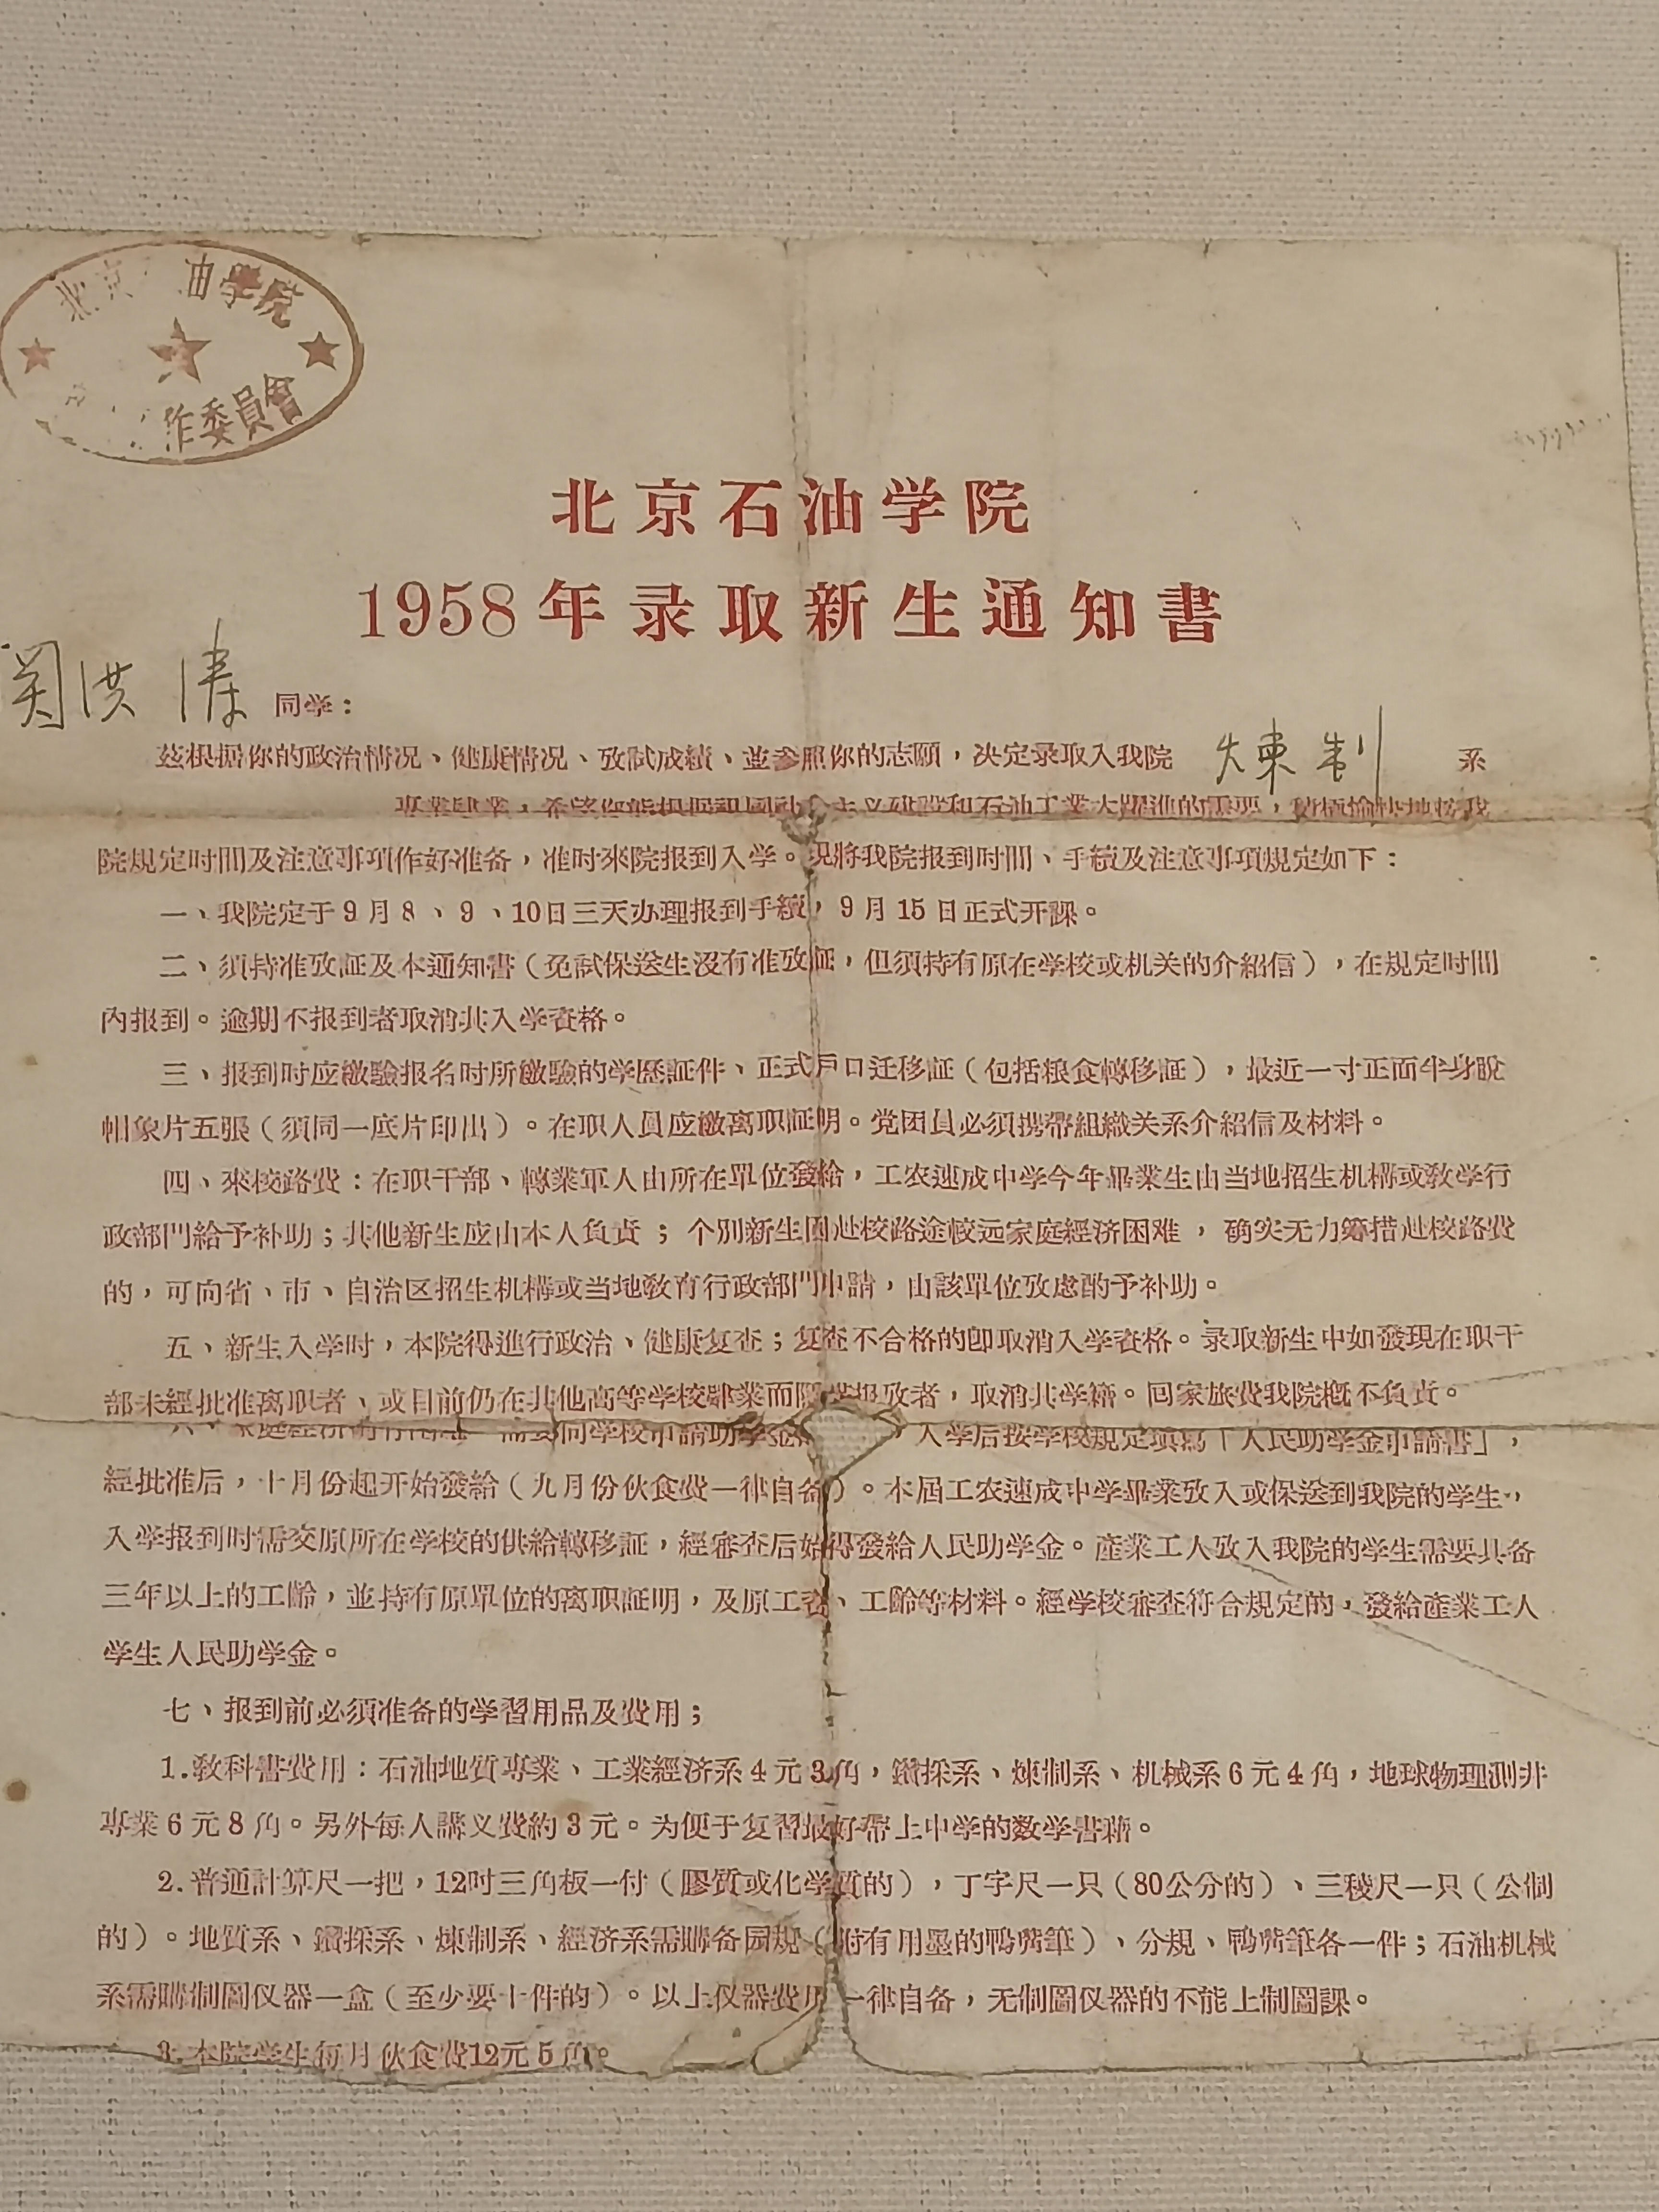 北京 油學院
作委員會
北京石油学院
1958年录取新生通知書
关洪涛 同学：
茲根据你的政治情况、健康情况、攷試成績、並参照你的志願，决定录取入我院 炼制 系
專業肄業，希望你能根据祖國社会主义建設和石油工業大躍進的需要，積極愉快地按我
院規定时間及注意事項作好准备，准时來院报到入学。現將我院报到时間、手續及注意事項規定如下：
一、我院定于9月8、9、10日三天办理报到手續，9月15日正式开課。
二、須持准攷証及本通知書（免試保送生沒有准攷証，但須持有原在学校或机关的介紹信），在規定时間
內报到。逾期不报到者取消其入学資格。
三、报到时应繳驗报名时所繳驗的学歷証件、正式戶口迁移証（包括粮食轉移証），最近一寸正面半身脫
帽象片五張（須同一底片印出）。在职人員应繳离职証明。党团員必須携帶組織关系介紹信及材料。
四、來校路費：在职干部、轉業軍人由所在單位發給，工农速成中学今年畢業生由当地招生机構或教学行
政部門給予补助；其他新生应由本人負責；个別新生因赴校路途較远家庭經济困难，确实无力籌措赴校路費
的，可向省、市、自治区招生机構或当地敎育行政部門申請，由該單位攷虑酌予补助。
五、新生入学时，本院得進行政治、健康复查；复查不合格的卽取消入学資格。录取新生中如發現在职干
部未經批准离职者、或目前仍在其他高等学校肄業而隱 报攷者，取消其学籍。回家旅費我院槪不負責。
六、家庭經济 需要向学校申請助学金 入学后按学校規定填寫「人民助学金申請書」，
經批准后，十月份起开始發給（九月份伙食費一律自备）。本屆工农速成中学畢業攷入或保送到我院的学生，
入学报到时需交原所在学校的供給轉移証，經審查后始得發給人民助学金。產業工人攷入我院的学生需要具备
三年以上的工齡，並持有原單位的离职証明，及原工資、工齡等材料。經学校審查符合規定的，發給產業工人
学生人民助学金。
七、报到前必須准备的学習用品及費用；
1.敎科書費用：石油地質專業、工業經济系4元3角，鑽採系、煉制系、机械系6元4角，地球物理測井
專業6元8角。另外每人講义費約3元。为便于复習最好帶上中学的数学書藉。
2.普通計算尺一把，12吋三角板一付（膠質或化学質的），丁字尺一只（80公分的）、三稜尺一只（公制
的）。地質系、鑽採系、煉制系、經济系需購备园規（附有用墨的鴨嘴筆）、分規、鴨嘴筆各一件；石油机械
系需購制圖仪器一盒（至少要十件的）。以上仪器費用一律自备，无制圖仪器的不能上制圖課。
3.本院学生每月伙食費12元5角。